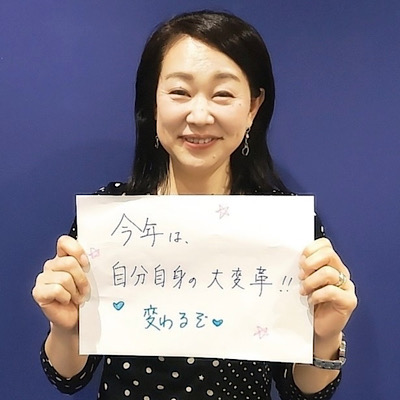 今年は、
自分自身の大変革!!
変わるぞ